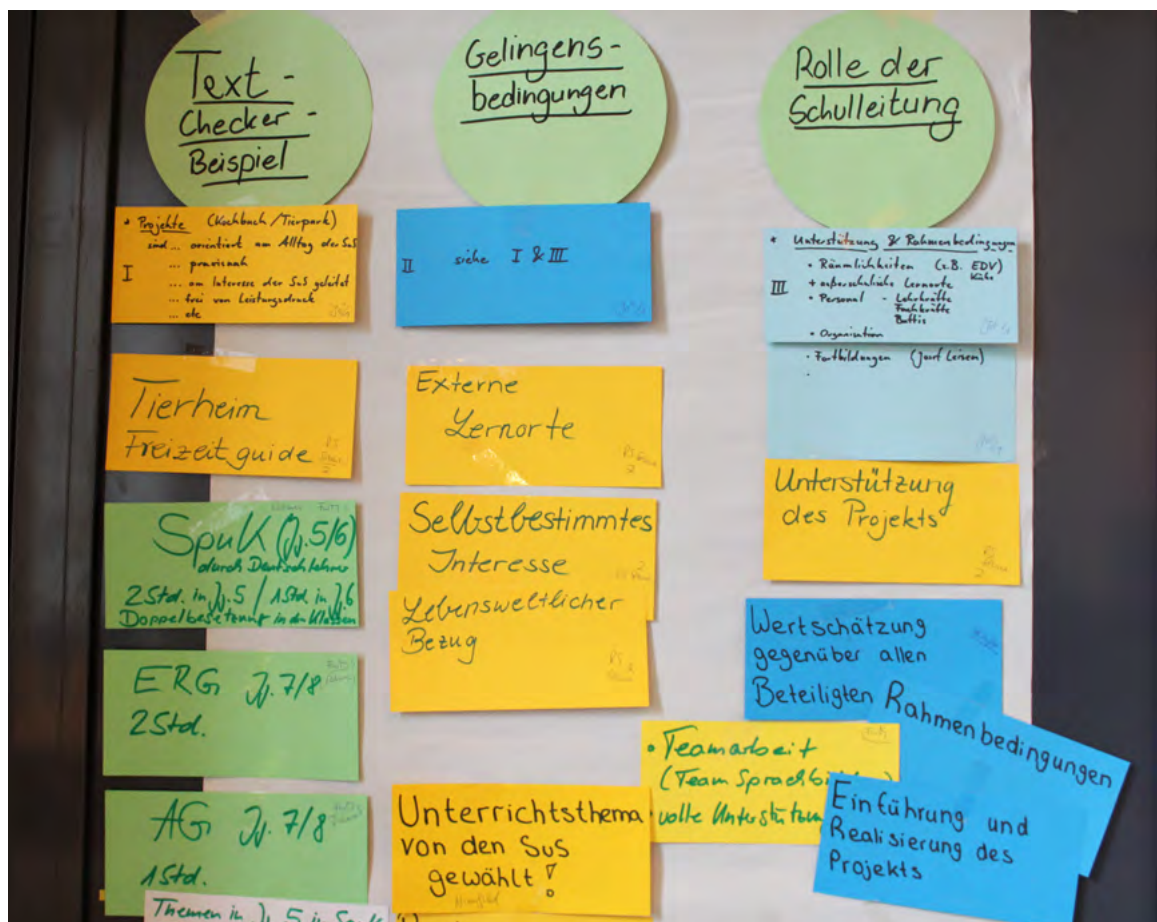 Text-
Checker-
Beispiel
• Projekte (Kochbuch/Tierpark)
sind ... orientiert am Alltag der SuS
I ... praxisnah
... am Interesse der SuS geleitet
... frei von Leistungsdruck
... etc
Tierheim
Freizeitguide
SpuK (Jg. 5/6)
durch Deutschlehrer
2 Std. in Jg. 5 / 1 Std. in Jg. 6
Doppelbesetzung in den Klassen
ERG Jg. 7/8
2 Std.
AG Jg. 7/8
1 Std.
Themen in Jg. 5 in Spuk
Gelingens-
bedingungen
II siehe I & III
Externe
Lernorte
Selbstbestimmtes
Interesse
Lebensweltlicher
Bezug
Unterrichtsthema
von den SuS
gewählt!
Rolle der
Schulleitung
• Unterstützung & Rahmenbedingungen
• Räumlichkeiten (z.B. EDV)
Küche
III + außerschulische Lernorte
• Personal - Lehrkräfte
Fachkräfte
Buftis
• Organisation
• Fortbildungen (Josef Leisen)
Unterstützung
des Projekts
Wertschätzung
gegenüber allen
Beteiligten
Rahmenbedingungen
• Teamarbeit
(Team
• volle
Einführung und
Realisierung des
Projekts